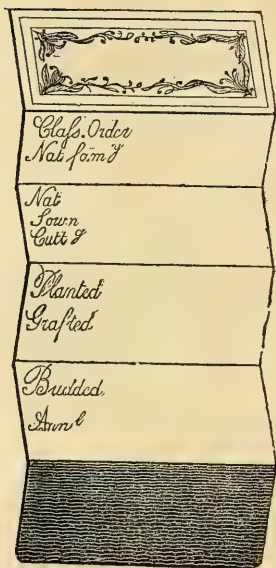 Claſs. Order
Nat fam y
Nat
Sown
Cutt g
Planted
Grafted
Budded.
Ann l